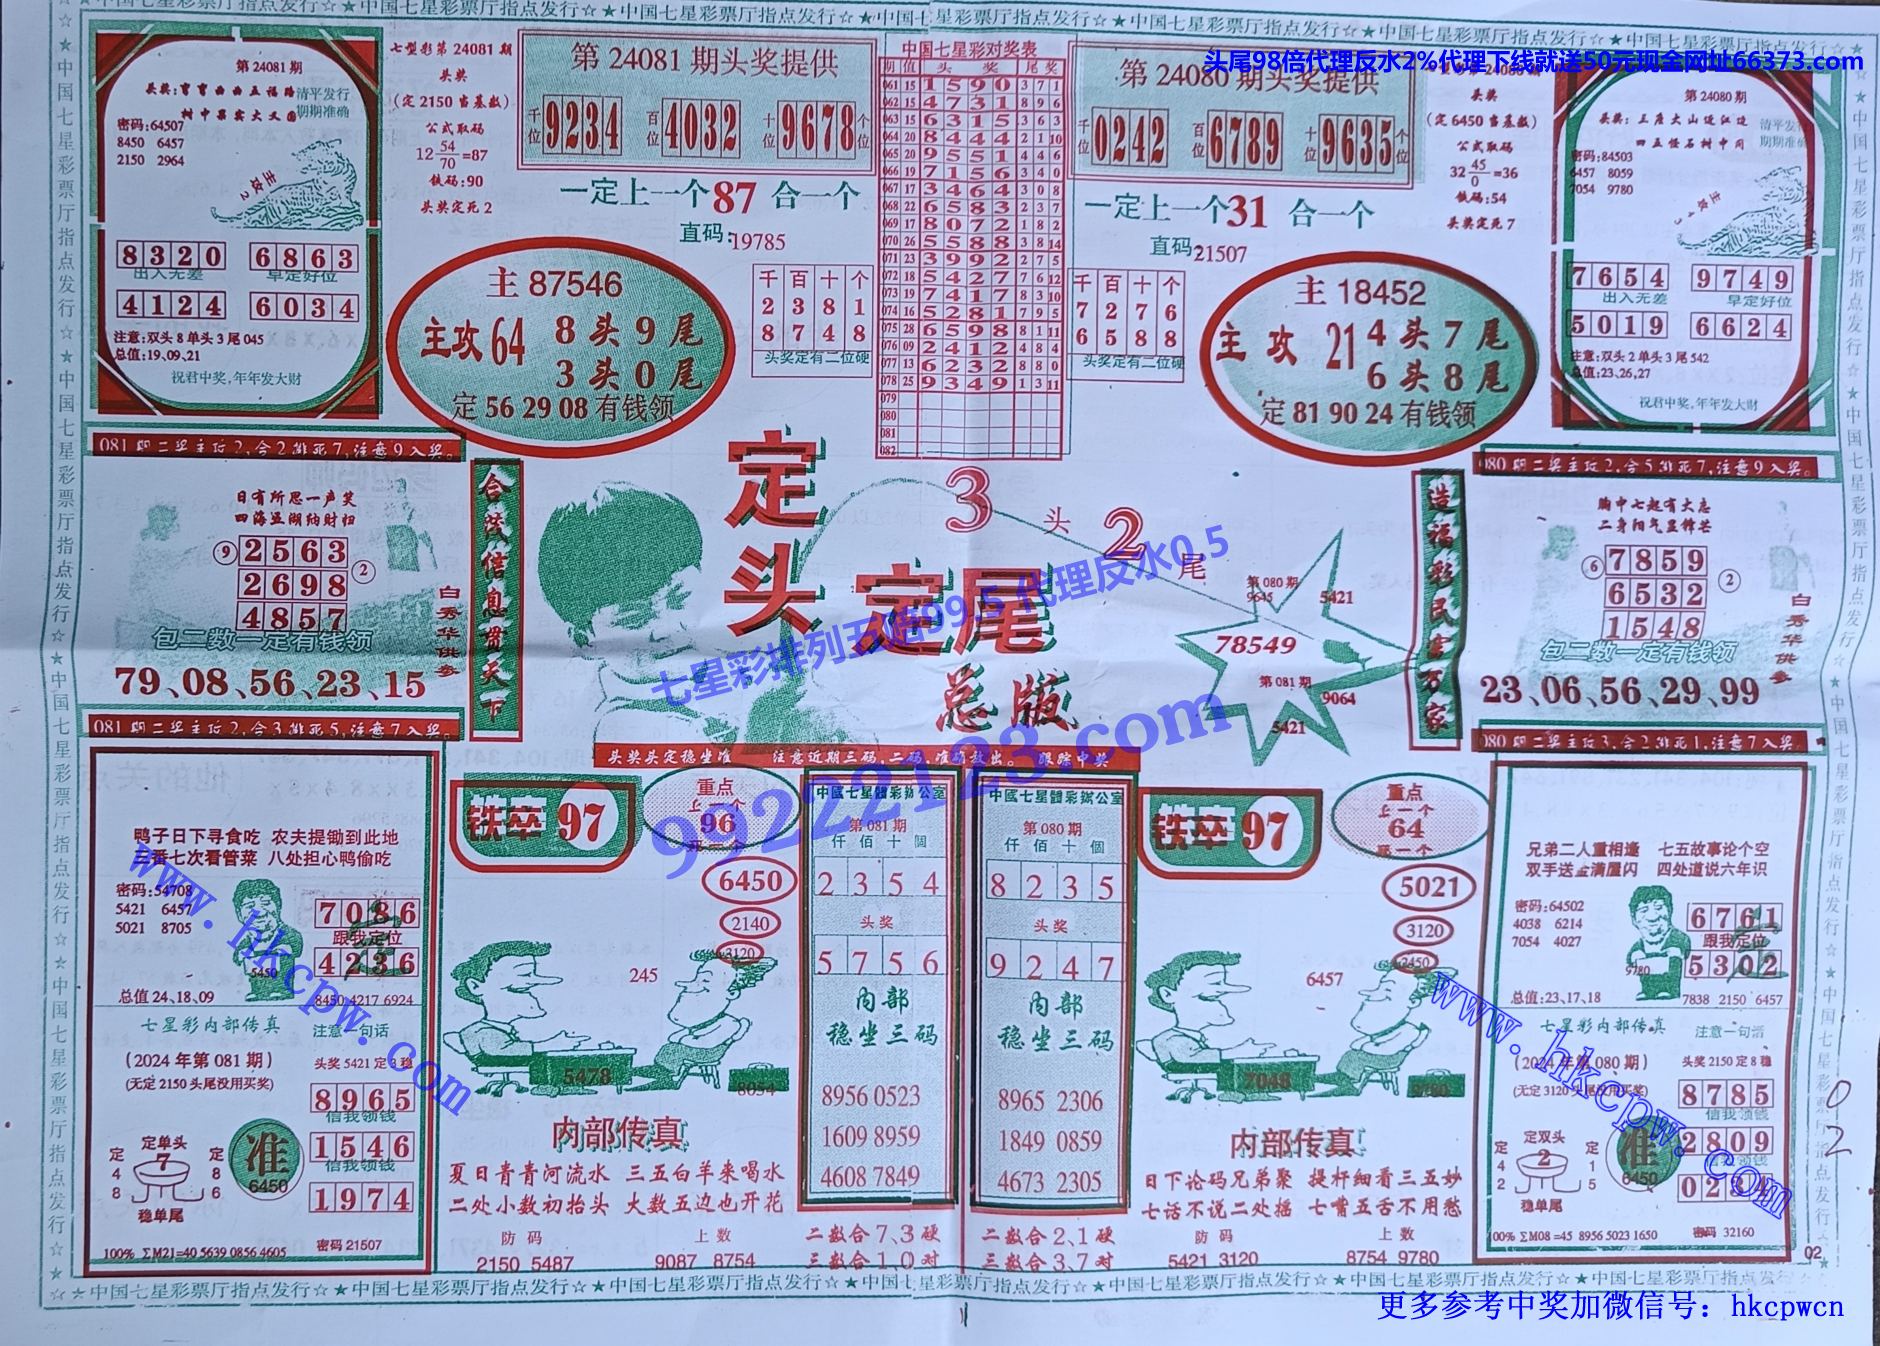 ☆★中国七星彩票厅指点发行☆★中国七星彩票厅指点发行☆★中国七星彩票厅指点发行☆★中国七星彩票厅指点发行☆
头尾98倍代理反水2%代理下线就送50元现金网址66373.com
第 24081 期
清平发行
期期准确
树中果实大又圆
密码:64507
8450 6457
2150 2964
主攻2
8320 6863
出入无差 早定好位
4124 6034
注意:双头 8 单头 3 尾 045
总值:19、09、21
祝君中奖,年年发大财
七星彩第 24081 期
头奖
(定 2150 当基数)
公式取码
12 54/70 =87
铁码:90
头奖定死 2
第 24081 期头奖提供
千位 9234 百位 4032 十位 9678 个位
一定上一个 87 合一个
直码:19785
主 87546
主攻 64 8 头 9 尾
3 头 0 尾
定 56 29 08 有钱领
千百十个
2381
8748
头奖定有二位硬
中国七星彩对奖表
期 值 头 奖 尾 奖
061 15 1590 3 7 1
062 15 4731 8 9 6
063 15 6315 3 6 3
064 20 8444 2 1 10
065 20 9551 4 4 6
066 19 7156 3 4 0
067 17 3464 3 0 8
068 22 6583 2 3 7
069 17 8072 1 8 2
070 26 5588 3 8 14
071 23 3992 2 7 5
072 18 5427 7 6 12
073 19 7417 8 3 10
074 16 5281 7 9 5
075 28 6598 8 1 11
076 09 2412 4 8 4
077 13 6232 8 8 0
078 25 9349 1 3 11
079
080
081
082
第 24080 期头奖提供
千位 0242 百位 6789 十位 9635 个位
一定上一个 31 合一个
直码:21507
千百十个
7276
6588
头奖定有二位硬
主 18452
主 攻 21 4 头 7 尾
6 头 8 尾
定 81 90 24 有钱领
头奖
(定 6450 当基数)
公式取码
32 45/0 =36
铁码:54
头奖定死 7
第 24080 期
头奖:三座大山近江边
四五怪石树中间
清平发行
期期准确
密码:84503
6457 8059
7054 9780
7654 9749
出入无差 早定好位
5019 6624
注意:双头 2 单头 3 尾 542
总值:23、26、27
祝君中奖,年年发大财
081 期二奖主位2,合2排死7,注意9入奖。
日有所思一声笑
四海五湖纳财归
⑨ 2563
2698 ②
4857
包二数一定有钱领
79、08、56、23、15
白秀华供参
合茂信息贯天下
081 期二奖主位2,合3排死5,注意7入奖。
定头定尾
总版
3 头 2 尾
七星彩排列五赔99.5 代理反水0.5
99222123.com
第 080 期
9645
5421
78549
第 081 期
9064
5421
造福彩民富万家
080 期二奖主位2,合5排死7,注意9入奖。
胸中七起有大志
二身阳气显锋芒
⑥ 7859
6532 ②
1548
包二数一定有钱领
23、06、56、29、99
白秀华供参
080 期二奖主位3,合2排死1,注意7入奖。
头奖头定稳坐准 注意近期三码,二码,准确放出。 跟踪中奖
鸭子日下寻食吃 农夫提锄到此地
三番七次看管菜 八处担心鸭偷吃
密码:54708
5421 6457
5021 8705
5450
7086
跟我定位
4236
总值 24、18、09
8450 4217 6924
www.hkcpw.com
七星彩内部传真 注意一句话
(2024 年第 081 期) 头奖 5421 定 3 稳
(无定 2150 头尾没用买奖)
8965
信我领钱
1546
信我领钱
1974
定单头
7
定 4 8
定 8 6
稳单尾
准
6450
100% ΣM21=40 5639 0856 4605 密码 21507
铁卒 97
重点
上一个
96
死一个
6450
2140
3120
245
5478
8054
内部传真
夏日青青河流水 三五白羊来喝水
二处小数初抬头 大数五边也开花
防码 上数
2150 5487 9087 8754
中國七星體彩辦公室
第 081 期
仟佰十個
2354
头奖
5756
内部
稳坐三码
8956 0523
1609 8959
4608 7849
二数合 7、3 硬
三数合 1、0 对
中國七星體彩辦公室
第 080 期
仟佰十個
8235
头奖
9247
内部
稳坐三码
8965 2306
1849 0859
4673 2305
二数合 2、1 硬
三数合 3、7 对
铁卒 97
重点
上一个
64
死一个
5021
3120
2450
6457
7048
9780
内部传真
日下论码兄弟聚 提杆细看三五妙
七话不说二处摇 七嘴五舌不用愁
防码 上数
5421 3120 8754 9780
兄弟二人重相逢 七五故事论个空
双手送孟满屋闪 四处道说六年识
密码:64502
4038 6214
7054 4027
9780
6761
跟我定位
5302
总值:23、17、18
7838 2150 6457
www.hkcpw.com
七星彩内部传真 注意一句活
(2024 年第 080 期) 头奖 2150 定 8 稳
(无定 3120 头尾没用买奖)
8785
信我领钱
2809
信我领钱
定双头
2
定 4 2
定 1 5
稳单尾
准
6450
00% ΣM08=45 8956 5023 1650 密码 32160
02
02
☆★中国七星彩票厅指点发行☆★中国七星彩票厅指点发行☆★中国七星彩票厅指点发行☆★中国七星彩票厅指点发行☆
更多参考中奖加微信号：hkcpwcn